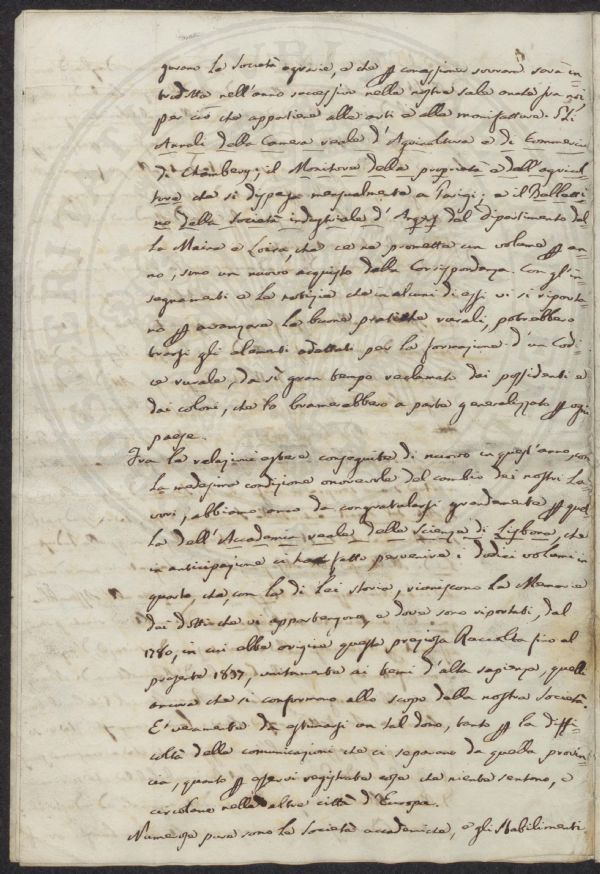 gurano le Società agrarie, e che per concessione sovrana sarà in-
trodotta nell'anno successivo nelle nostre sale anate fra noi
per ciò che appartiene alle arti e alle manifatture. Gli
Annali della Camera reale d'Agricoltura e di Commercio
di Chambery; il Monitore della proprietà e dell'agricol-
tura che si dispensa mensualmente a Parigi; e il Bolletti-
no della Società industriale d'Angers del dipartimento del-
la Maine e Loira, che ce ne promette un volume per an-
no, sono un nuovo acquisto della Corrispondenza. Con gl'in-
segnamenti e le notizie che in alcuni di essi vi si riporta-
no per avanzare le buone pratiche rurali, potrebbero
trarsi gli elementi adattati per la formazione d'un Codi-
ce rurale, da sì gran tempo reclamato dai possidenti e
dai coloni, che lo bramerebbero a parte generalizzato per ogni
paese.
Fra le relazioni estere conseguite di nuovo in quest'anno, con
la medesima condizione onorevole del cambio dei nostri La-
vori, abbiamo anco da congratularsi grandemente per quel-
la dell'Accademia reale delle Scienze di Lisbona, che
in anticipazione ci ha fatto pervenire i dodici volumi in
quarto, che, con la di lei storia, riuniscono le Memorie
dei dotti che vi appartengono, e dove sono riportati, dal
1780, in cui ebbe origine questa preziosa Raccolta fino al
presente 1837, unitamente ai temi d'alta sapienza, quelli
ancora che si conformano allo scopo della nostra Società.
E' veramente da estimarsi un tal dono, tanto per la diffi-
coltà delle comunicazioni che ci separano da quella provin-
cia, quanto per esservi registrate cose che niente sentono, e
circolano nelle altre città d'Europa.
Numerose pure sono le Società accademiche, e gli Stabilimenti